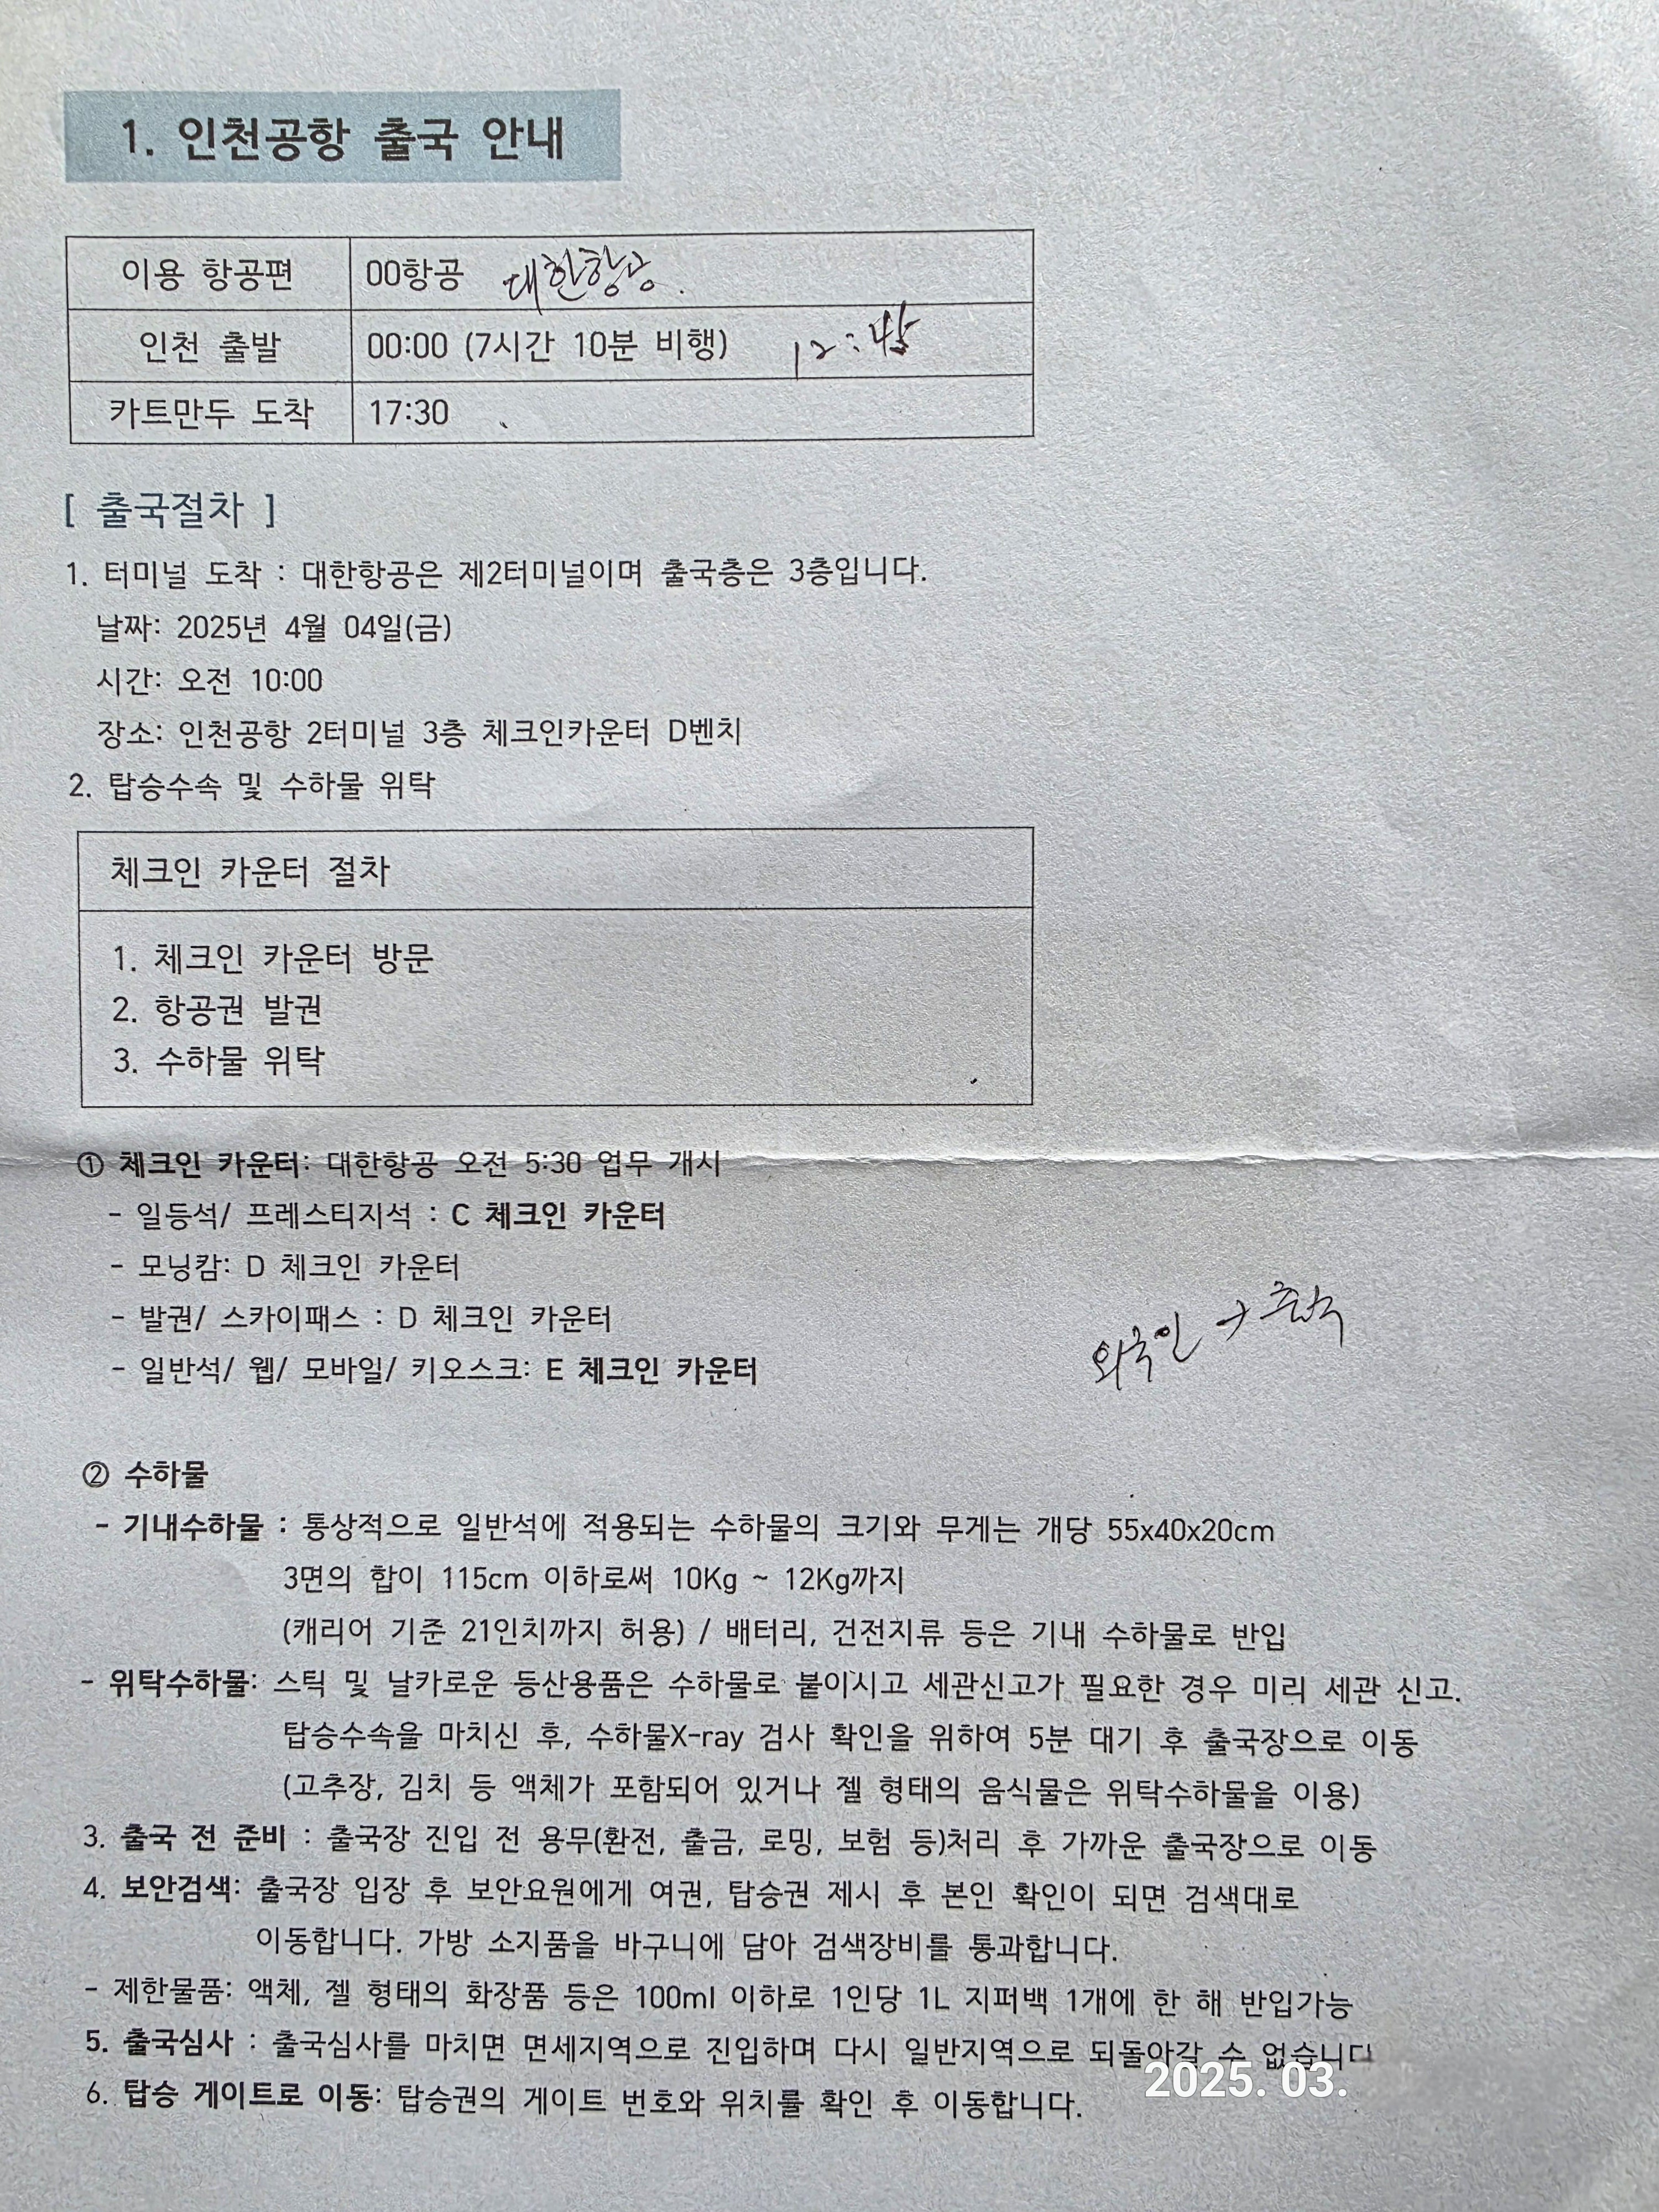 1. 인천공항 출국 안내
이용 항공편 00항공 대한항공.
인천 출발 00:00 (7시간 10분 비행) 12:
카트만두 도착 17:30
[ 출국절차 ]
1. 터미널 도착 : 대한항공은 제2터미널이며 출국층은 3층입니다.
날짜: 2025년 4월 04일(금)
시간: 오전 10:00
장소: 인천공항 2터미널 3층 체크인카운터 D벤치
2. 탑승수속 및 수하물 위탁
체크인 카운터 절차
1. 체크인 카운터 방문
2. 항공권 발권
3. 수하물 위탁
① 체크인 카운터: 대한항공 오전 5:30 업무 개시
- 일등석/ 프레스티지석 : C 체크인 카운터
- 모닝캄: D 체크인 카운터
- 발권/ 스카이패스 : D 체크인 카운터
외국인 → 출국
- 일반석/ 웹/ 모바일/ 키오스크: E 체크인 카운터
② 수하물
- 기내수하물 : 통상적으로 일반석에 적용되는 수하물의 크기와 무게는 개당 55x40x20cm
3면의 합이 115cm 이하로써 10Kg ~ 12Kg까지
(캐리어 기준 21인치까지 허용) / 배터리, 건전지류 등은 기내 수하물로 반입
- 위탁수하물: 스틱 및 날카로운 등산용품은 수하물로 붙이시고 세관신고가 필요한 경우 미리 세관 신고.
탑승수속을 마치신 후, 수하물X-ray 검사 확인을 위하여 5분 대기 후 출국장으로 이동
(고추장, 김치 등 액체가 포함되어 있거나 젤 형태의 음식물은 위탁수하물을 이용)
3. 출국 전 준비 : 출국장 진입 전 용무(환전, 출금, 로밍, 보험 등)처리 후 가까운 출국장으로 이동
4. 보안검색: 출국장 입장 후 보안요원에게 여권, 탑승권 제시 후 본인 확인이 되면 검색대로
이동합니다. 가방 소지품을 바구니에 담아 검색장비를 통과합니다.
- 제한물품: 액체, 젤 형태의 화장품 등은 100ml 이하로 1인당 1L 지퍼백 1개에 한 해 반입가능
5. 출국심사 : 출국심사를 마치면 면세지역으로 진입하며 다시 일반지역으로 되돌아갈 수 없습니다
6. 탑승 게이트로 이동: 탑승권의 게이트 번호와 위치를 확인 후 이동합니다.
2025. 03.